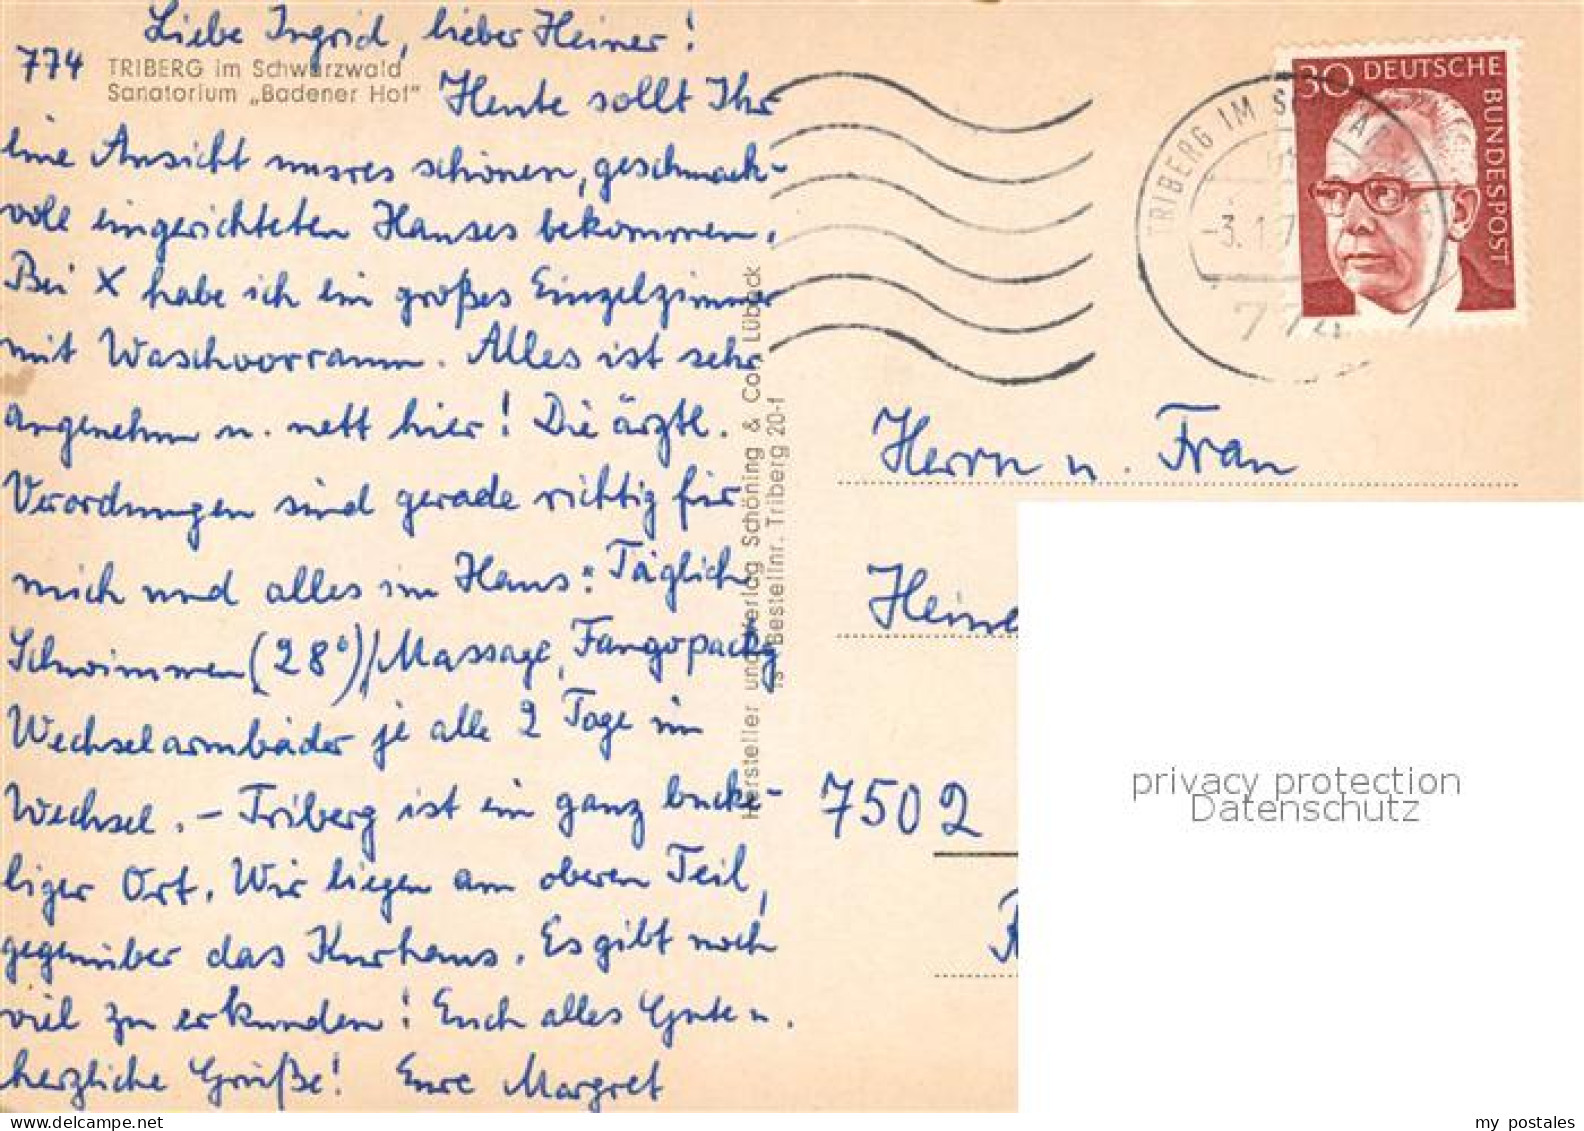 Liebe Ingrid, lieber Heiner!
774 TRIBERG im Schwarzwald
Sanatorium „Badener Hof"
Heute sollt Ihr
eine Ansicht unsres schönen, geschmack-
voll eingerichteten Hauses bekommen.
Bei X habe ich ein großes Einzelzimmer
mit Waschvorraum. Alles ist sehr
angenehm u. nett hier! Die ärztl.
Verordnungen sind gerade richtig für
mich und alles im Haus: Täglich
Schwimmen (28°)/Massage, Fangopackg
Wechselarmbäder je alle 2 Tage im
Wechsel. – Triberg ist ein ganz bucke-
liger Ort. Wir liegen am oberen Teil,
gegenüber das Kurhaus. Es gibt noch
viel zu erkunden! Euch alles Gute u.
herzliche Grüße! Eure Margret
Hersteller und Verlag Schöning & Co., Lübeck
is Bestellnr. Triberg 20-f
30 DEUTSCHE
BUNDESPOST
TRIBERG IM
-3.1.7
774
Herrn u. Frau
Heine
7502
privacy protection
Datenschutz
my postales